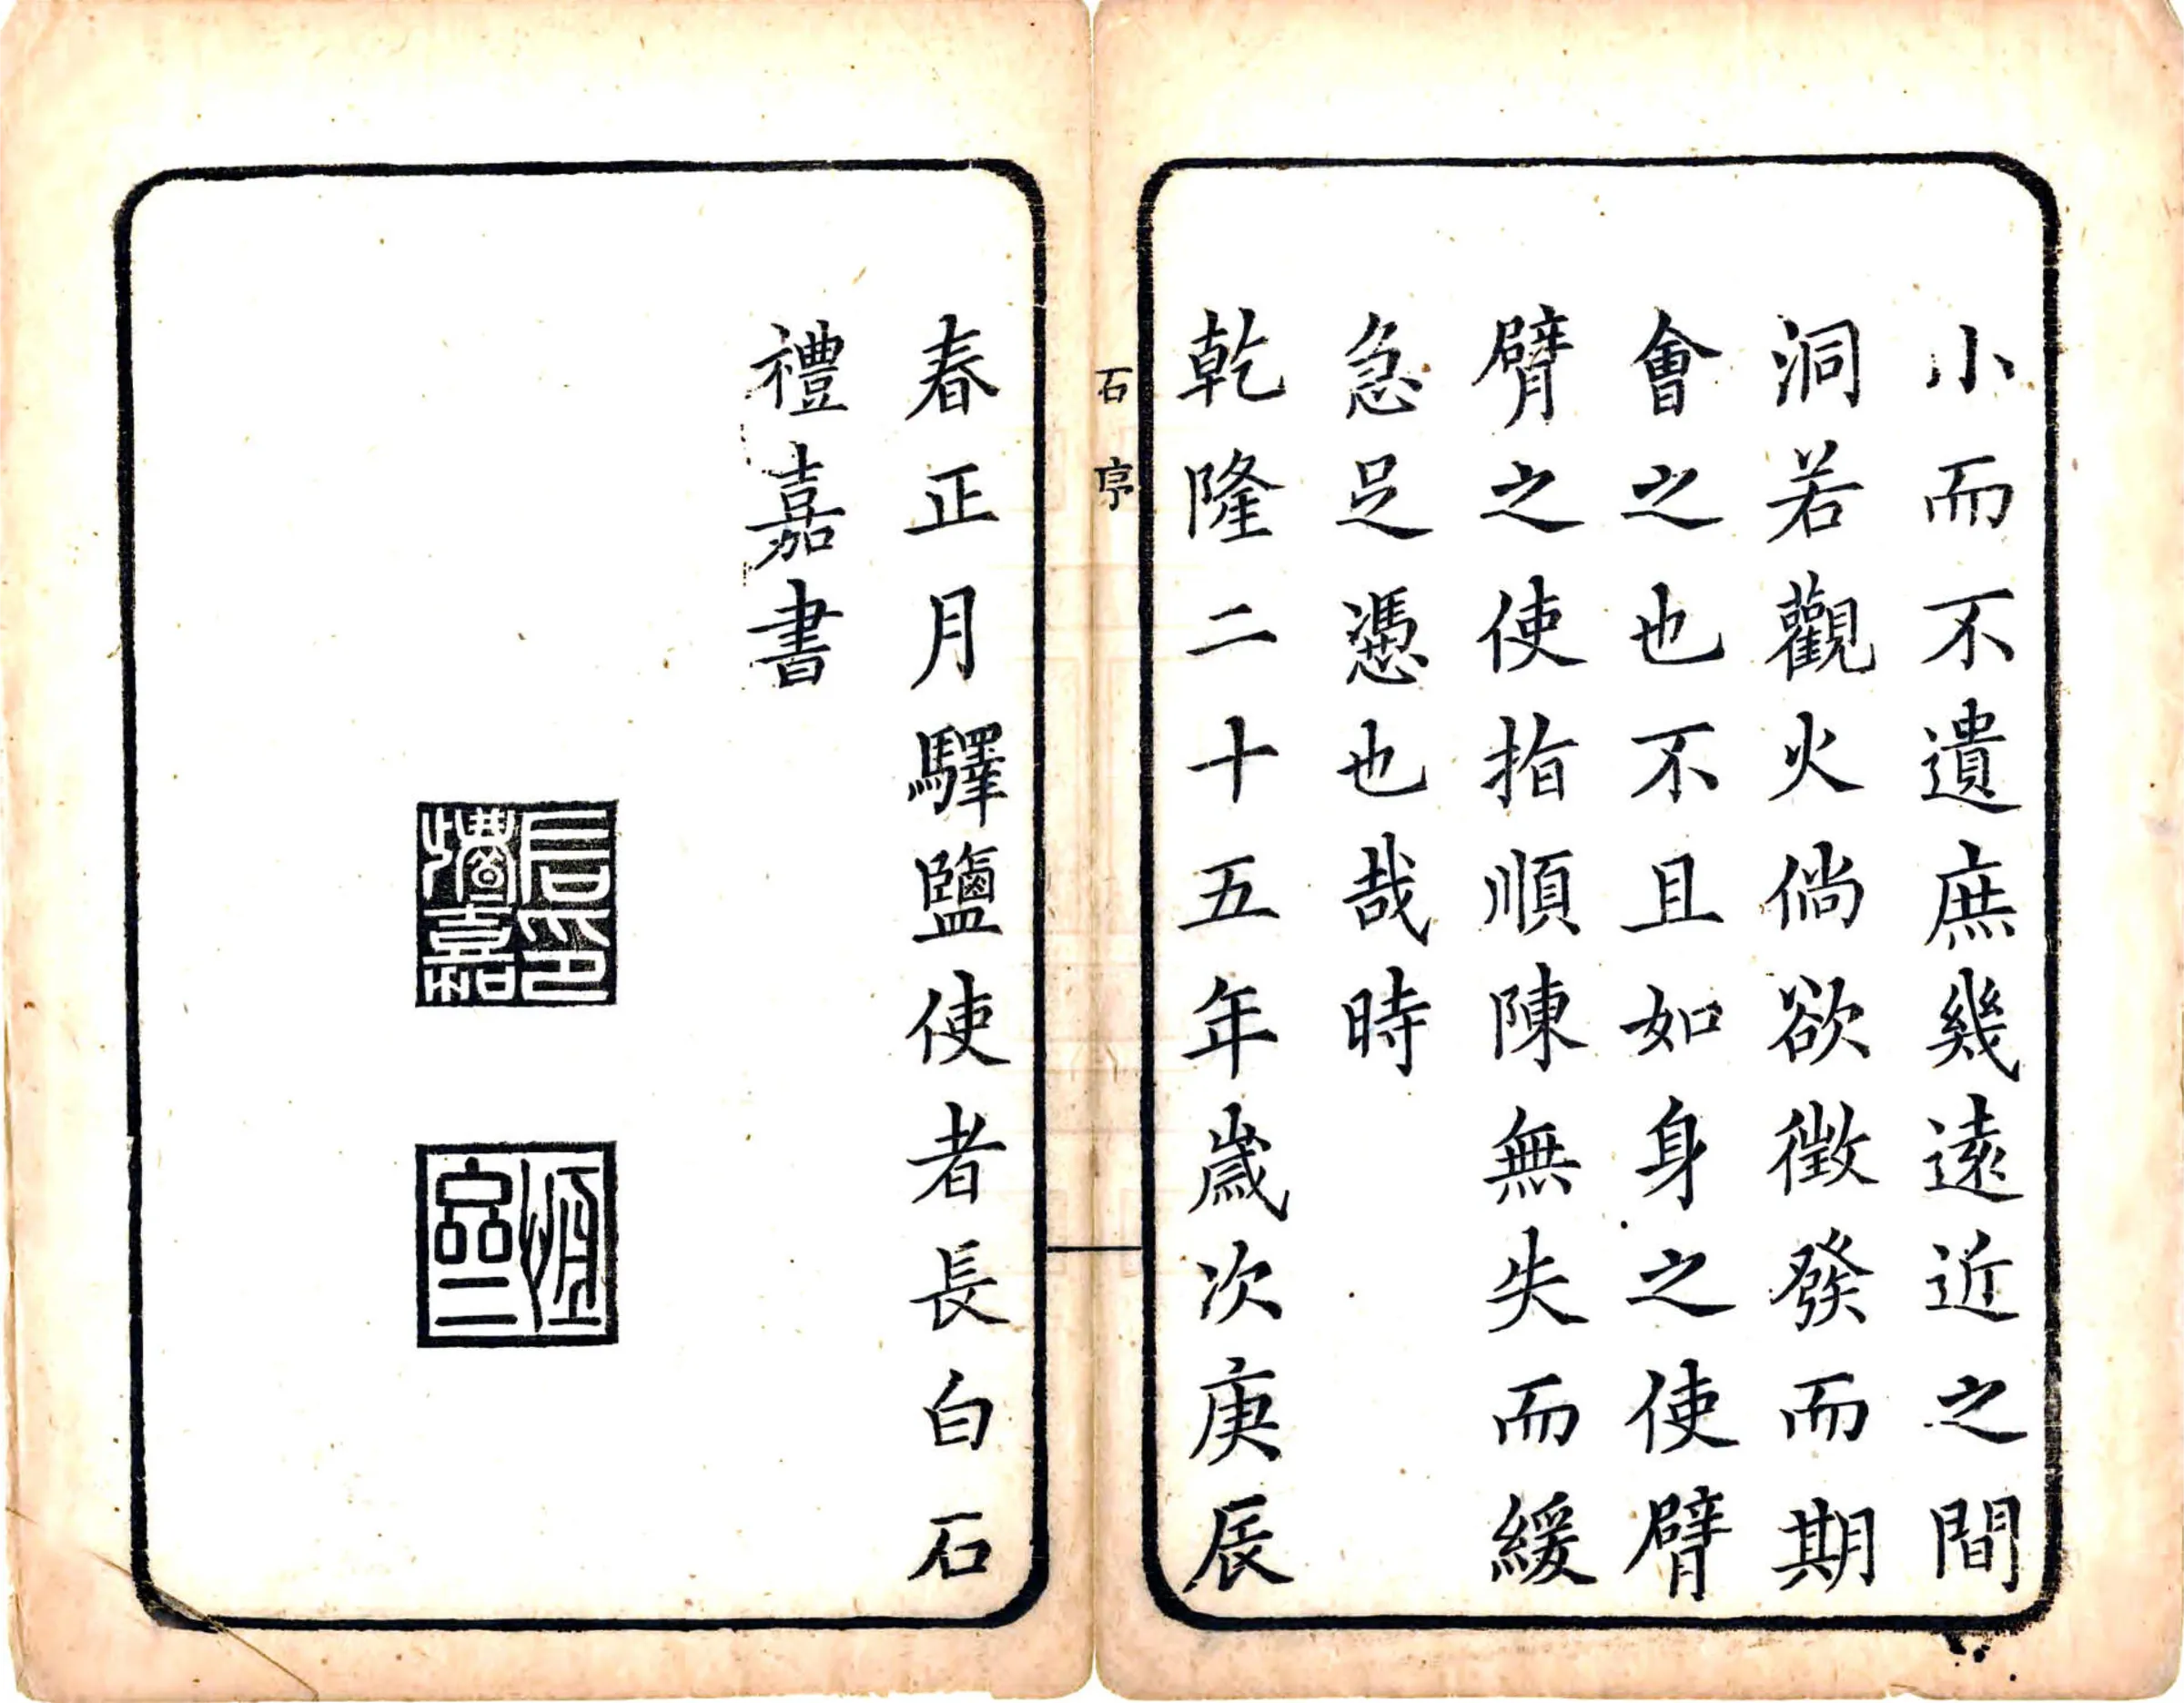 小而不遺庶幾遠近之間
洞若觀火倘欲徵發而期
會之也不且如身之使臂
臂之使指順陳無失而緩
急足憑也哉時
乾隆二十五年歲次庚辰
石序
春正月驛鹽使者長白石
禮嘉書
石印禮嘉